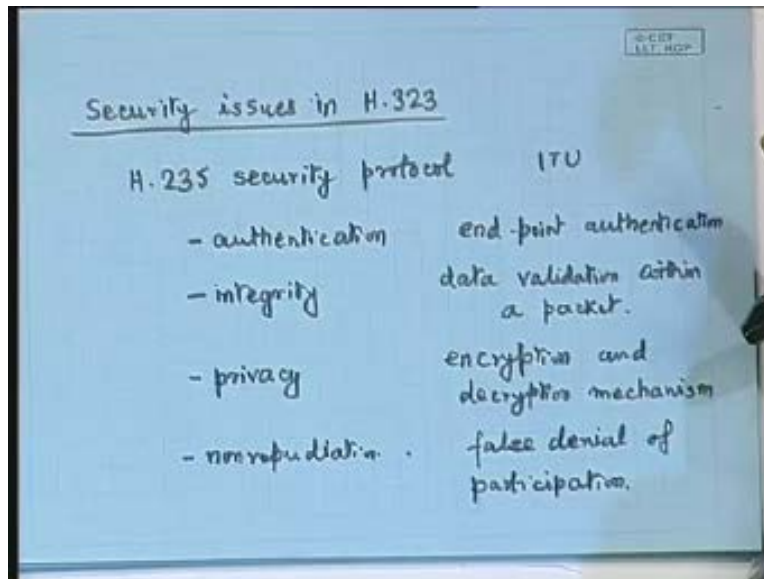 © CET
I.I.T. KGP
Security issues in H.323
H.235 security protocol ITU
- authentication end-point authentication
- integrity data validation within
a packet.
- privacy encryption and
decryption mechanism
- nonrepudiation. false denial of
participation.